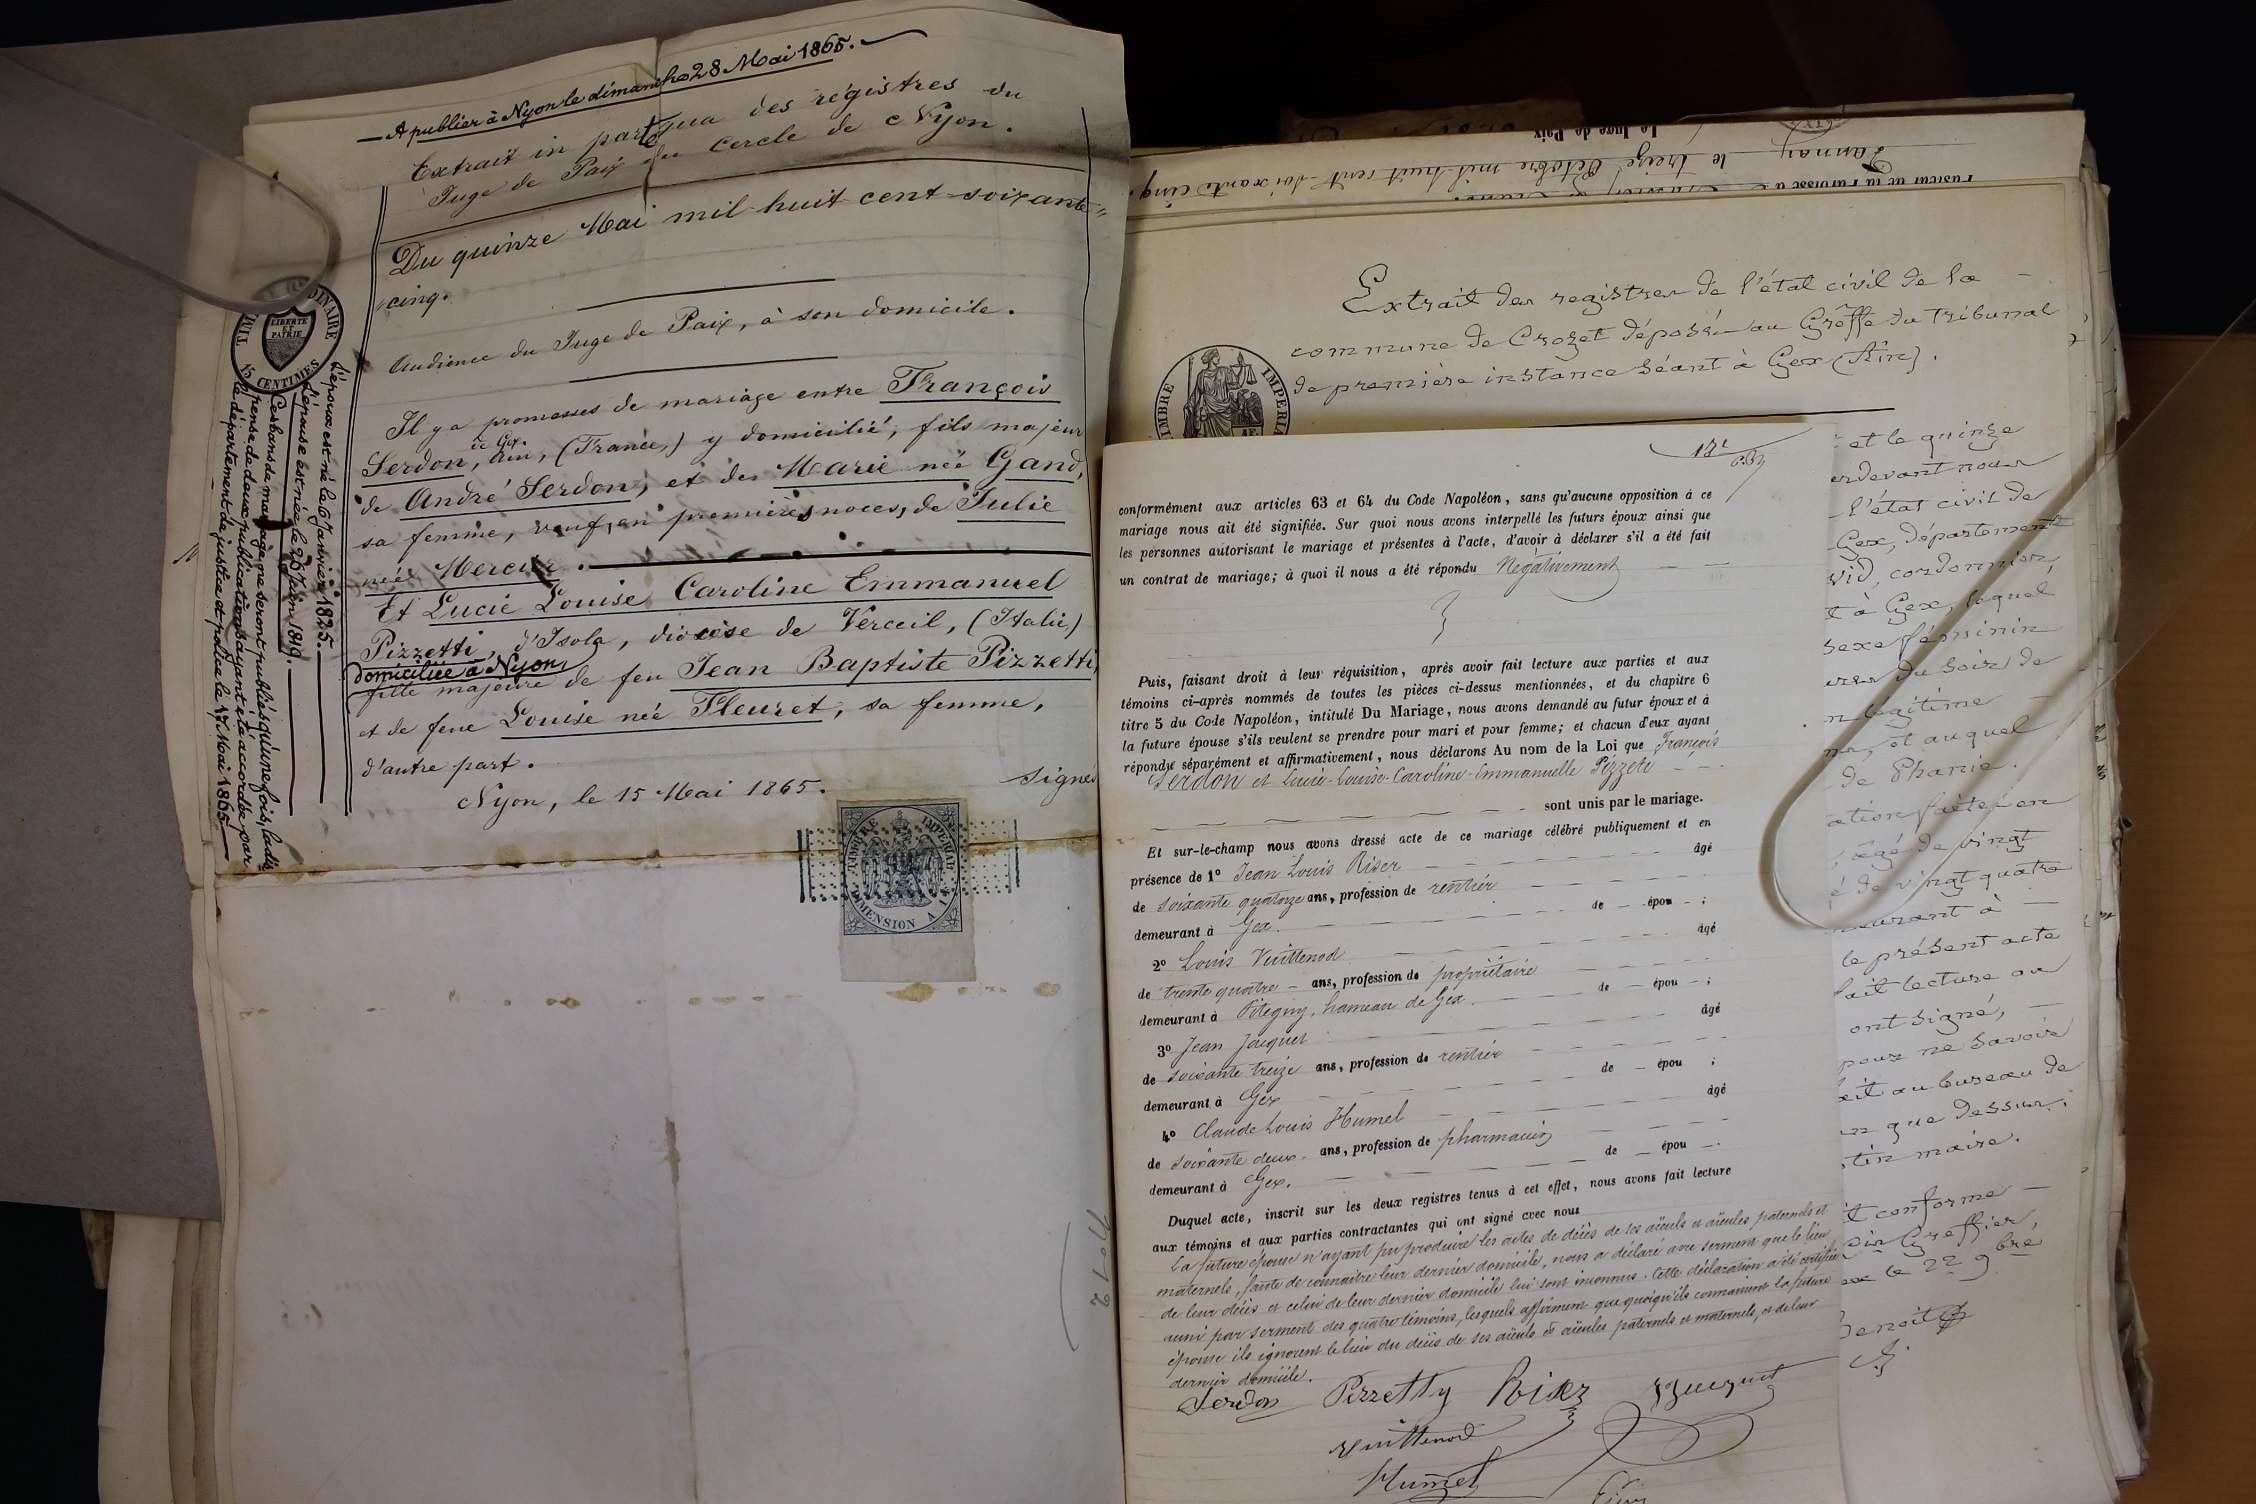 A publier à Nyon le dimanche 28 Mai 1865.
Extrait in parte qua des régistres du
Juge de Paix du Cercle de Nyon.
Du quinze Mai mil huit cent soixante=
cinq.
Audience du Juge de Paix, à son domicile.
Il y a promesses de mariage entre François
Serdon, de Gex, Ain, (France,) y domicilié, fils majeur
de André Serdon, et de Marie née Gand,
sa femme, veuf, en premières noces, de Julie
née Mercier.
Et Lucie Louise Caroline Emmanuel
Pizzetti, d'Isola, diocèse de Verceil, (Italie)
domiciliée à Nyon
fille majeure de feu Jean Baptiste Pizzetti,
et de feue Louise née Fleuret, sa femme,
d'autre part.
Nyon, le 15 Mai 1865.
Signé
L'époux est né le 6 Janvier 1825.
L'épouse est née le 26 Juin 1819.
Ces bans de mariage ne seront publiés qu'une fois, la dis
pense de deux publications ayant été accordée par
le département de justice et police le 17 Mai 1865
ORDINAIRE
LIBERTÉ
ET
PATRIE
15 CENTIMES
TIMBRE IMPERIAL
DIMENSION A 1
No 12
Le Juge de Paix
le treize Octobre mil huit cent soixante cinq.
Pasteur de la Paroisse de
Extrait des registres de l'état civil de la
commune de Crozet déposés au Greffe du Tribunal
de première instance séant à Gex (Ain).
TIMBRE IMPERIAL
conformément aux articles 63 et 64 du Code Napoléon, sans qu'aucune opposition à ce
mariage nous ait été signifiée. Sur quoi nous avons interpellé les futurs époux ainsi que
les personnes autorisant le mariage et présentes à l'acte, d'avoir à déclarer s'il a été fait
un contrat de mariage; à quoi il nous a été répondu Négativement
Puis, faisant droit à leur réquisition, après avoir fait lecture aux parties et aux
témoins ci-après nommés de toutes les pièces ci-dessus mentionnées, et du chapitre 6
titre 5 du Code Napoléon, intitulé Du Mariage, nous avons demandé au futur époux et à
la future épouse s'ils veulent se prendre pour mari et pour femme; et chacun d'eux ayant
répondu séparément et affirmativement, nous déclarons Au nom de la Loi que François
Serdon et Lucie-Louise-Caroline-Emmanuelle Pizzeti
sont unis par le mariage.
Et sur-le-champ nous avons dressé acte de ce mariage célébré publiquement et en
présence de 1° Jean Louis Riser âgé
de soixante quatorze ans, profession de rentier
demeurant à Gex. de épou ;
2° Louis Vuittenod âgé
de trente quatre ans, profession de propriétaire
demeurant à Pitegny, hameau de Gex. de épou ;
3° Jean Jacquet âgé
de soixante treize ans, profession de rentier
demeurant à Gex de épou ;
4° Claude Louis Humel âgé
de soixante deux ans, profession de pharmacien
demeurant à Gex. de épou .
Duquel acte, inscrit sur les deux registres tenus à cet effet, nous avons fait lecture
aux témoins et aux parties contractantes qui ont signé avec nous
La future épouse n'ayant pu produire les actes de décès de ses aïeuls et aïeules paternels et
maternels, faute de connaître leur dernier domicile, nous a déclaré avec serment que le lieu
de leur décès et celui de leur dernier domicile lui sont inconnus. Cette déclaration a été certifiée
aussi par serment des quatre témoins, lesquels affirment que quoiqu'ils connaissent la future
épouse ils ignorent le lieu du décès de ses aïeuls et aïeules paternels et maternels, et de leur
dernier domicile.
Serdon Pizzetty Riser Jacquet
Vuittenod
Humel
et le quinze
devant nous
l'état civil de
Gex, département
cordonnier,
à Gex, lequel
sexe féminin
du soir de
légitime
et auquel
de Phanie.
âgé de vingt
de vingt quatre
à
le présent acte
fait lecture au
ont signé,
pour ne savoir
au bureau de
que dessus.
maire.
conforme
Greffier,
le 22 9bre
Benoit